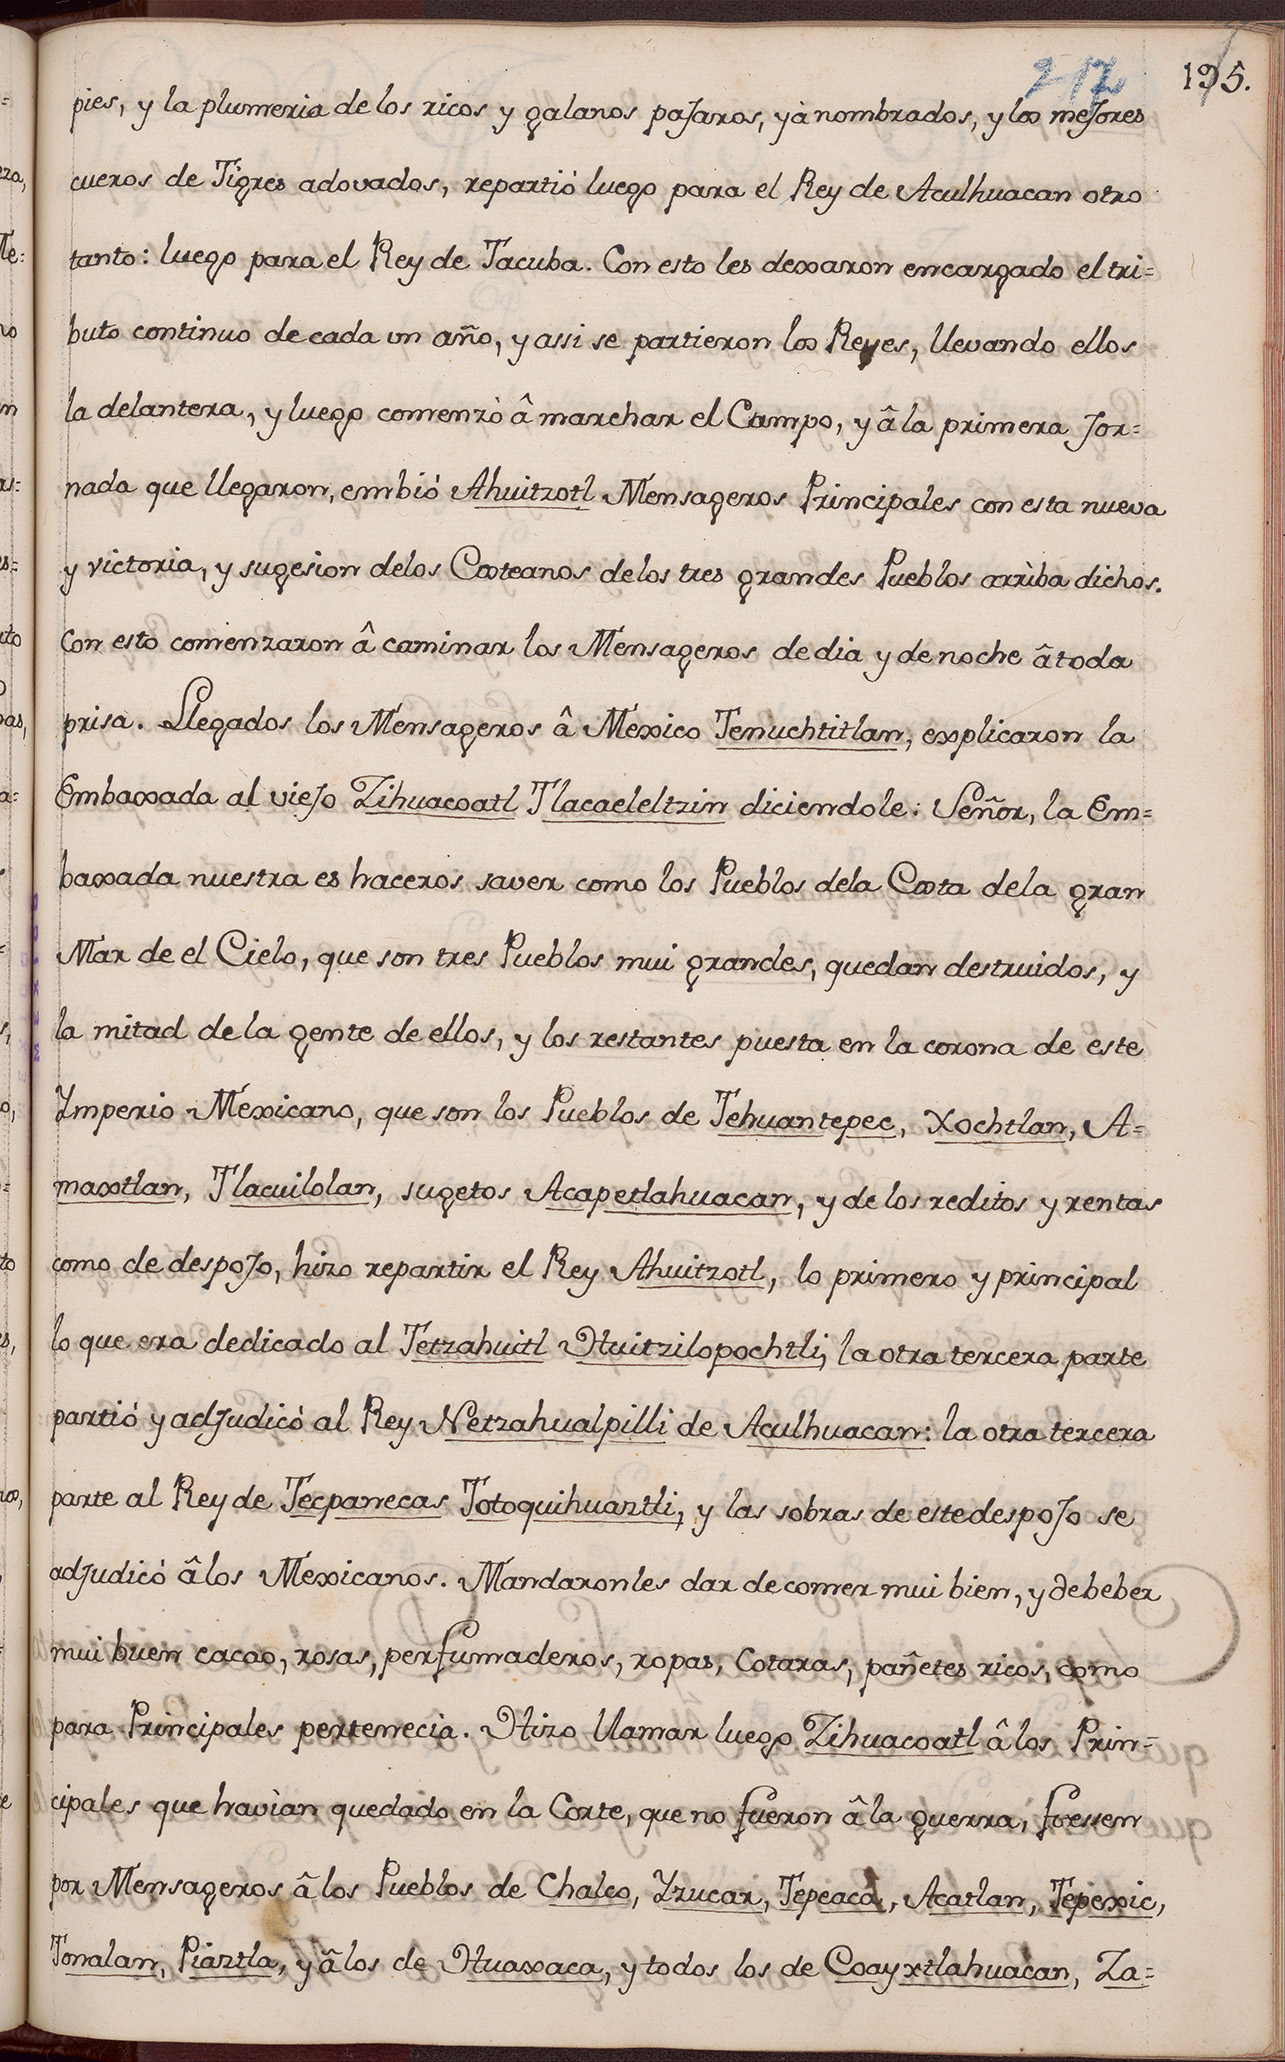 217 195.
pies, y la plumeria de los ricos y galanos paJaros, yà nombrados, y los meJores
cueros de Tigres adovados, repartió luego para el Rey de Aculhuacan otro
tanto: luego para el Rey de Tacuba. Con esto les dexaron encargado el tri=
buto continuo de cada un año, y assi se partieron los Reyes, llevando ellos
la delantera, y luego comenzò â marchar el Campo, y â la primera Jor=
nada que llegaron, embió Ahuitzotl Mensageros Principales con esta nueva
y victoria, y sugesion delos Costeanos de los tres grandes Pueblos arriba dichos.
Con esto comenzaron â caminar los Mensageros de dia y de noche â toda
prisa. Llegados los Mensageros â Mexico Tenuchtitlan, explicaron la
Embaxada al vieJo Zihuacoatl Tlacaeleltzin diciendole: Señor, la Em=
baxada nuestra es haceros saver como los Pueblos dela Costa dela gran
Mar de el Cielo, que son tres Pueblos mui grandes, quedan destruidos, y
la mitad de la gente de ellos, y los restantes puesta en la corona de este
Ymperio Mexicano, que son los Pueblos de Tehuantepec, Xochtlan, A=
maxtlan, Tlacuilolan, sugetos Acapetlahuacan, y de los reditos y rentas
como de despoJo, hizo repartir el Rey Ahuitzotl, lo primero y principal
lo que era dedicado al Tetzahuitl Huitzilopochtli, la otra tercera parte
partió y adJudicò al Rey Netzahualpilli de Aculhuacan: la otra tercera
parte al Rey de Tecpanecas Totoquihuaztli, y las sobras de este despoJo se
adJudicò â los Mexicanos. Mandaronles dar de comer mui bien, y de beber
mui buen cacao, rosas, perfumaderos, ropas, Cotaras, pañetes ricos, como
para Principales pertenecia. Hizo llamar luego Zihuacoatl â los Prin=
cipales que havìan quedado en la Corte, que no fueron â la guerra, fuessen
por Mensageros â los Pueblos de Chalco, Yzucar, Tepeaca, Acatlan, Tepexic,
Tonalan, Piaztla, y â los de Huaxaca, y todos los de Coayxtlahuacan, Za=